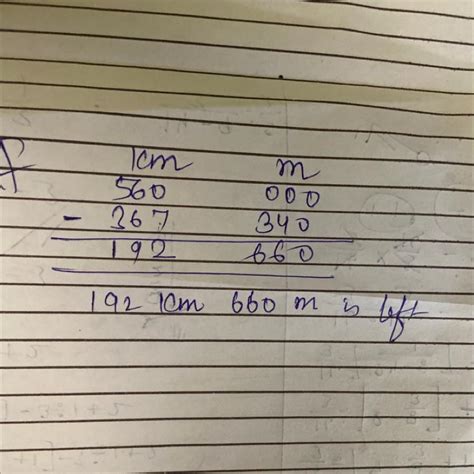 km m
560 000
- 367 340
192 660
192 km 660 m is left